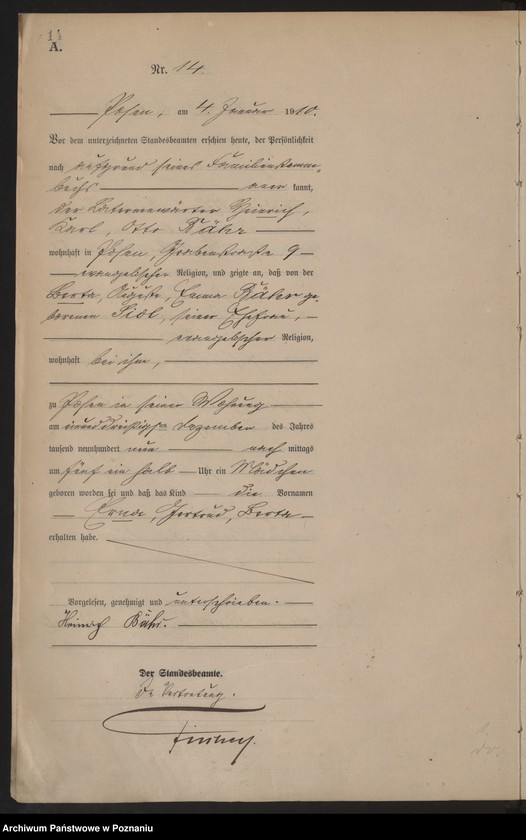 14
A.
Nr. 14.
Posen, am 4. Januar 1910.
Vor dem unterzeichneten Standesbeamten erschien heute, der Persönlichkeit
nach aufgrund seines Familienstamm-
buchs kannt,
der Laternenwärter Heinrich,
Karl, Otto Bähr
wohnhaft in Posen, Grabenstraße 9
evangelischer Religion, und zeigte an, daß von der
Berta, Auguste, Emma Bähr ge-
borenen seiner Ehefrau,
evangelischer Religion,
wohnhaft bei ihm,
zu Posen in seiner Wohnung
am Dezember des Jahres
tausend neunhundert neun nach mittags
um fünf ein halb Uhr ein Mädchen
geboren worden sei und daß das Kind die Vornamen
Erna, Gertrud, Berta
erhalten habe.
Vorgelesen, genehmigt und unterschrieben.
Heinrich Bähr.
Der Standesbeamte.
In Vertretung.
Archiwum Państwowe w Poznaniu